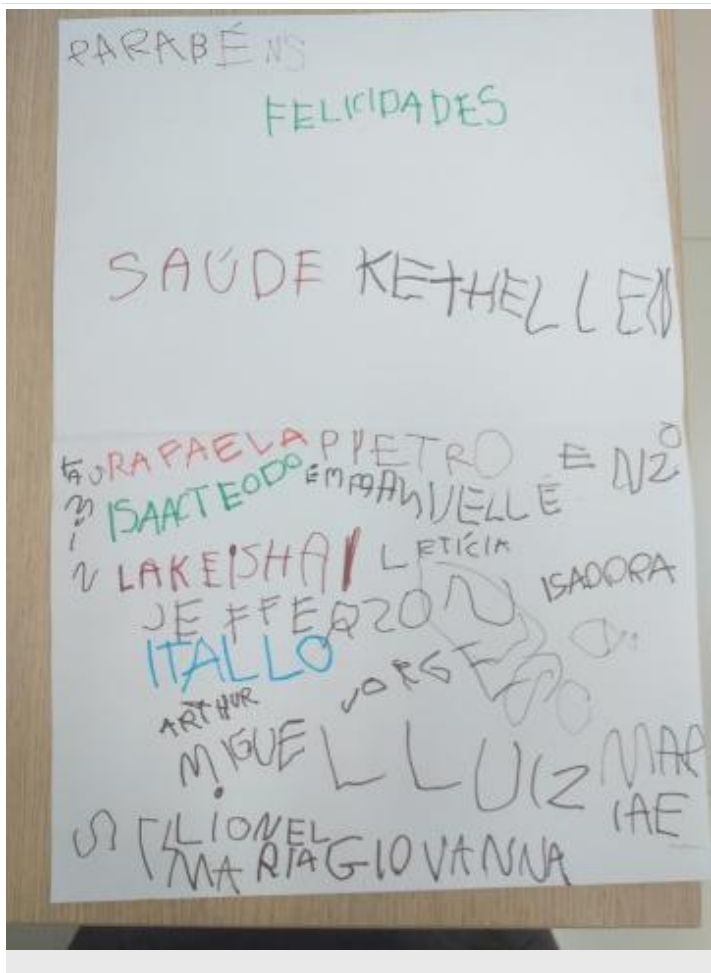 PARABÉNS
FELICIDADES
SAÚDE KETHELLEN
RAFAELA PIETRO ENZO
ISAAC TEODO EMMANUELLE
LAKEISHA LETÍCIA
ISADORA
JEFFERZON
ITALLO
ARTHUR JORGE
MIGUEL LLUIZ MAR
IAE
LIONEL
MARIA GIOVANNA